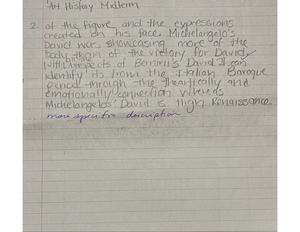 Art History Midterm
2. of the figure and the expressions
created on his face. Michelangelo's
David was showcasing more of the
body than of the victory for David
With aspects of Bernini's David I can
identify its from the Italian Baroque
period through the theartically and
emotionally connection whereas
Michelangelos' David is High Renaissance
more specific description